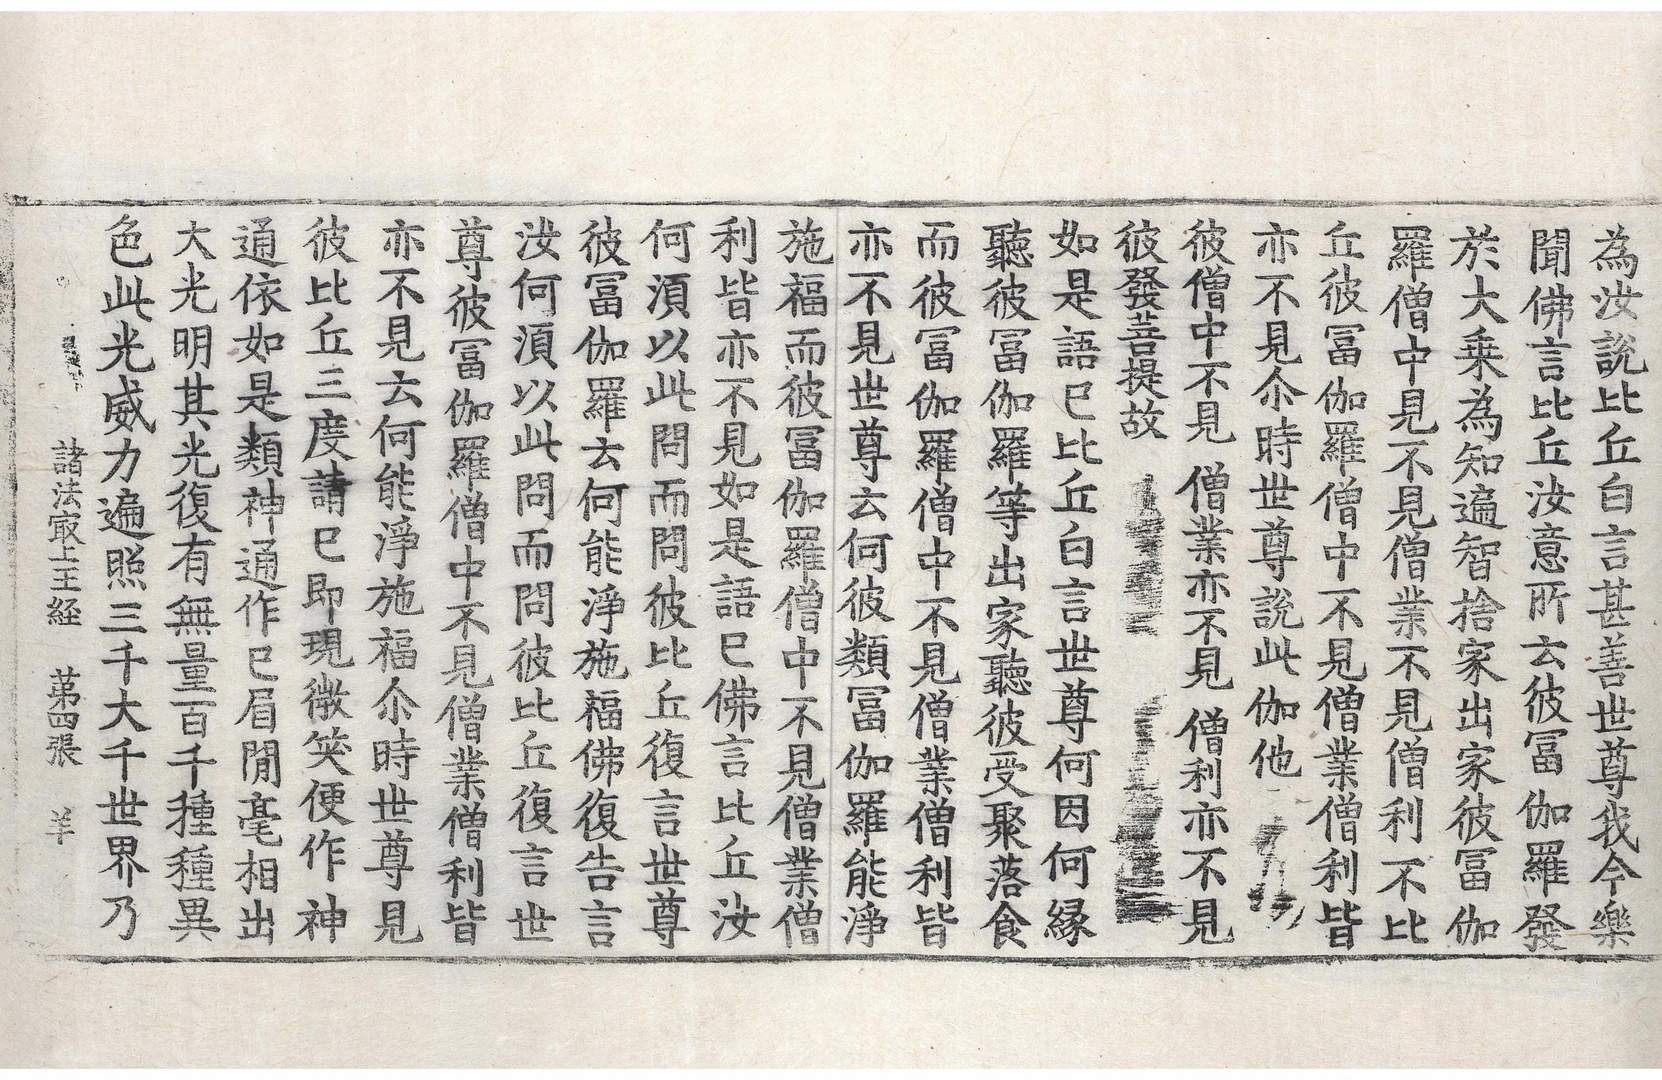 為汝說比丘白言甚善世尊我今樂
聞佛言比丘汝意所云彼冨伽羅發
於大乗為知遍智捨家出家彼冨伽
羅僧中見不見僧業不見僧利不比
丘彼冨伽羅僧中不見僧業僧利皆
亦不見尒時世尊說此伽他
彼僧中不見 僧業亦不見 僧利亦不見
彼發菩提故
如是語已比丘白言世尊何因何緣
聽彼冨伽羅等出家聽彼受聚落食
而彼冨伽羅僧中不見僧業僧利皆
亦不見世尊云何彼類冨伽羅能淨
施福而彼冨伽羅僧中不見僧業僧
利皆亦不見如是語已佛言比丘汝
何湏以此問而問彼比丘復言世尊
彼冨伽羅云何能淨施福佛復告言
汝何湏以此問而問彼比丘復言世
尊彼冨伽羅僧中不見僧業僧利皆
亦不見云何能淨施福尒時世尊見
彼比丘三度請已即現微笑便作神
通依如是類神通作已眉閒毫相出
大光明其光復有無量百千種種異
色此光威力遍照三千大千世界乃
諸法㝡上王經 苐四張 羊